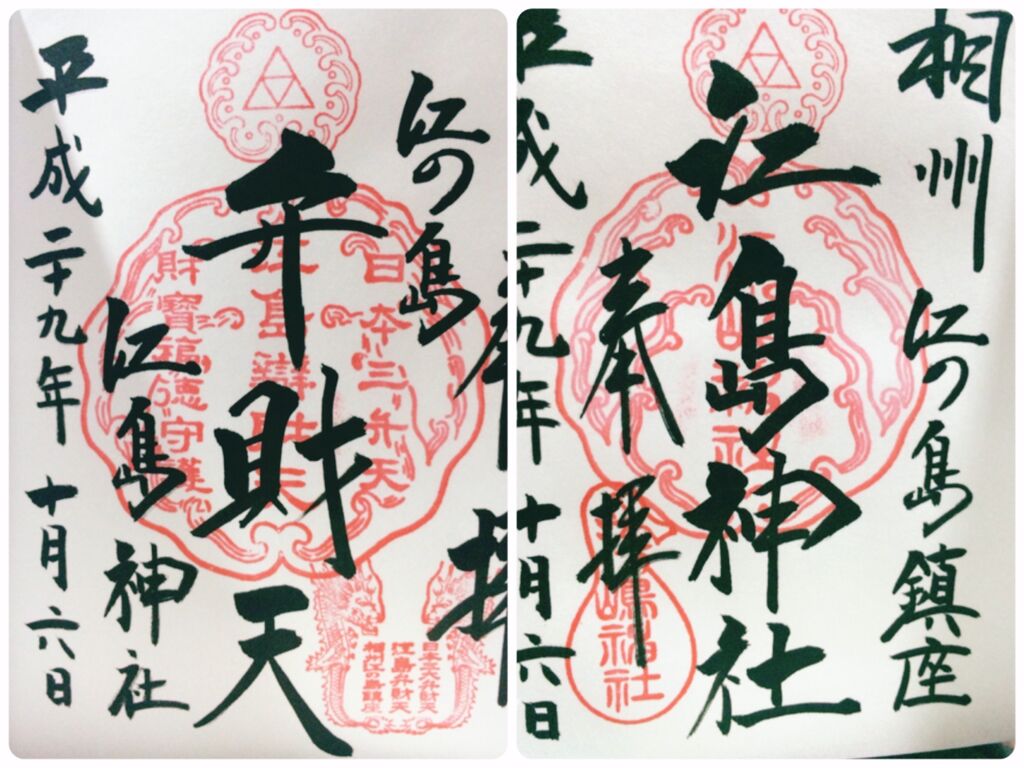 江の島
弁財天
江島神社
平成二十九年 十月六日
日本三弁天
財寶福徳守護
日本三大弁財天
江島弁財天
相州江の島鎮座
相州
江の島鎮座
江島神社
奉拝
平成二十九年 十月六日